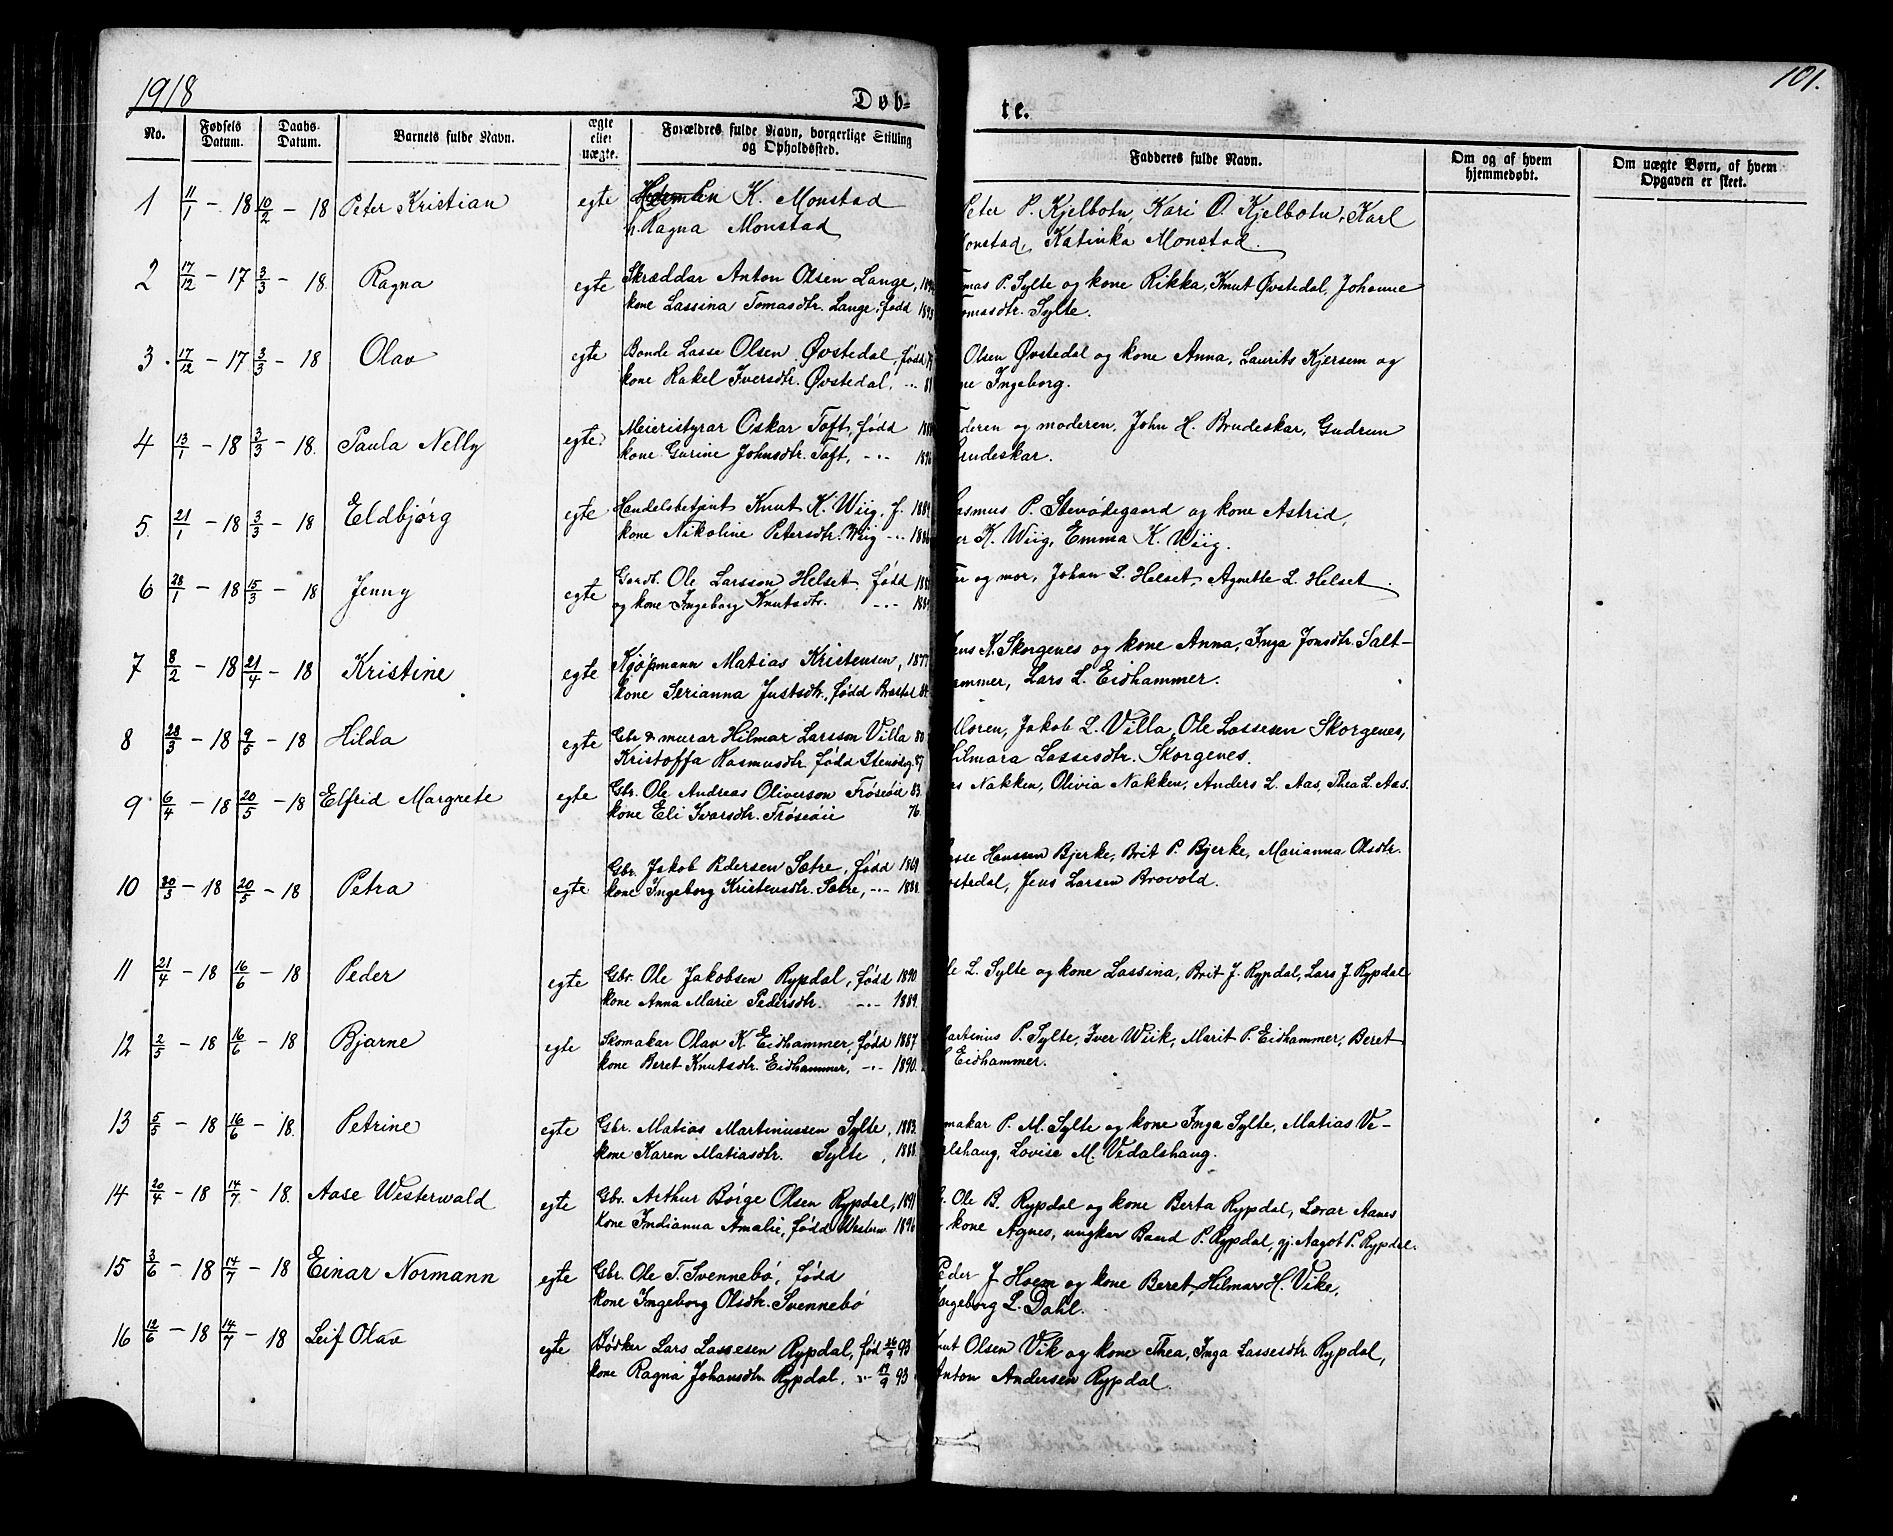 1918
Døb-
te.
101.
No.
Fødsels Datum.
Daabs- Datum.
Barnets fulde Navn.
ægte eller uægte.
Forældres fulde Navn, borgerlige Stilling og Opholdssted.
Fadderes fulde Navn.
Om og af hvem hjemmedøbt.
Om uægte Børn, af hvem Opgaven er skeet.
1 11/1 - 18 10/2 - 18 Peter Kristian egte K. Monstad Peter P. Kjelbotn, Kari O. Kjelbotn, Karl
h. Ragna Monstad Monstad, Katinka Monstad.
2 17/12 - 17 3/3 - 18. Ragna egte Skræddar Anton Olsen Lange, Tomas P. Sylte og kone Rikka, Knut Øvstedal, Johanne
kone Lassina Tomasdtr. Lange, fødd 1895 Tomasdtr. Sylte.
3. 17/12 - 17 3/3 - 18 Olav egte Bonde Lasse Olsen Øvstedal, fødd Olsen Øvstedal og kone Anna, Laurits Kjersem og
kone Rakel Iversdtr. Øvstedal, -"- 81 kone Ingeborg.
4 13/1 - 18 3/3 - 18. Paula Nelly egte Meieristyrar Oskar Toft, fødd Faderen og moderen, John H. Brudeskar, Gudrun
kone Gurine Johnsdtr. Toft, -"- 1896 Brudeskar.
5. 21/1 - 18 3/3 - 18 Eldbjørg egte Handelsbetjent Knut K. Wiig, f. 1889 Rasmus P. Stenødegaard og kone Astrid,
kone Nikoline Petersdtr. Wiig -"- 1886 K. Wiig, Emma K. Wiig.
6 28/1 - 18 15/3 - 18 Jenny egte Gardb. Ole Larsson Helset, fødd Far og mor, Johan L. Helset, Agnette L. Helset.
og kone Ingeborg Knutsdtr. -"-
7 8/2 - 18 21/4 - 18 Kristine egte Kjøpmann Matias Kristensen, 1877 Skorgenes og kone Anna, Inga Jonsdtr. Salt-
kone Serianna Justsdtr., fødd hammer, Lars L. Eidhammer.
8 28/3 - 18 9/5 - 18 Hilda egte Gbr & murar Hilmar Larsson Villa 80 Moren, Jakob L. Villa, Ole Lassesen Skorgenes,
Kristoffa Rasmusdtr. fødd Stenødeg. 87 Hilmara Lassesdtr. Skorgenes.
9 6/4 - 18 20/5 - 18 Elfrid Margrete egte Gbr. Ole Andreas Oliverson Trøseøii 83. Nakken, Olivia Nakken, Anders L. Aas, Thea L. Aas.
kone Eli Ivarsdtr. Trøseøii 76.
10 20/3 - 18 20/5 - 18 Petra egte Gbr. Jakob Pedersen Sætre, fødd 1869 Lasse Hanssen Bjerke, Brit P. Bjerke, Marianna Olsdtr.
kone Ingeborg Kristensdtr. Sætre, -"- 1888. Øvstedal, Jens Larsen Brovold.
11 21/4 - 18 16/6 - 18 Peder egte Gbr. Ole Jakobsen Rypdal, fødd 1890. Ole L. Sylte og kone Lassina, Brit J. Rypdal, Lars J. Rypdal
kone Anna Marie Pedersdtr. -"- 1889.
12 2/5 - 18 16/6 - 18 Bjarne egte Skomakar Olav K. Eidhammer, fødd 1887 Martinus P. Sylte, Iver Wiik, Marit P. Eidhammer, Beret
kone Beret Knutsdtr. Eidhammer, -"- 1890. Eidhammer.
13 5/5 - 18 16/6 - 18. Petrine egte Gbr. Matias Martinussen Sylte, 1883. Skomakar P. M. Sylte og kone Inga Sylte, Matias Ve-
kone Karen Matiasdtr. Sylte, 1888. dalshaug, Lovise M. Vedalshaug.
14 20/4 - 18 14/7 - 18. Aase Westerwald egte Gbr. Arthur Børge Olsen Rypdal, 1891 Ole B. Rypdal og kone Berta Rypdal, Lærar Aanes
kone Indianna Amalie, fødd Western 1896 kone Agnes, ungkar Baard P. Rypdal, gj. Aagot P. Rypdal.
15 3/6 - 18 14/7 - 18 Einar Normann egte Gbr. Ole T. Svennebø, fødd Peder J Hoem og kone Beret, Hilmar H. Vike,
kone Ingeborg Olsdtr. Svennebø Ingeborg L. Dahl.
16 12/6 - 18 14/7 - 18 Leif Olav egte Bødker Lars Lassesen Rypdal, fød 26/9 93 Knut Olsen Vik og kone Thea, Inga Lassesdtr Rypdal,
kone Ragna Johansdtr. Rypdal, -"- 93 Anton Andersen Rypdal.